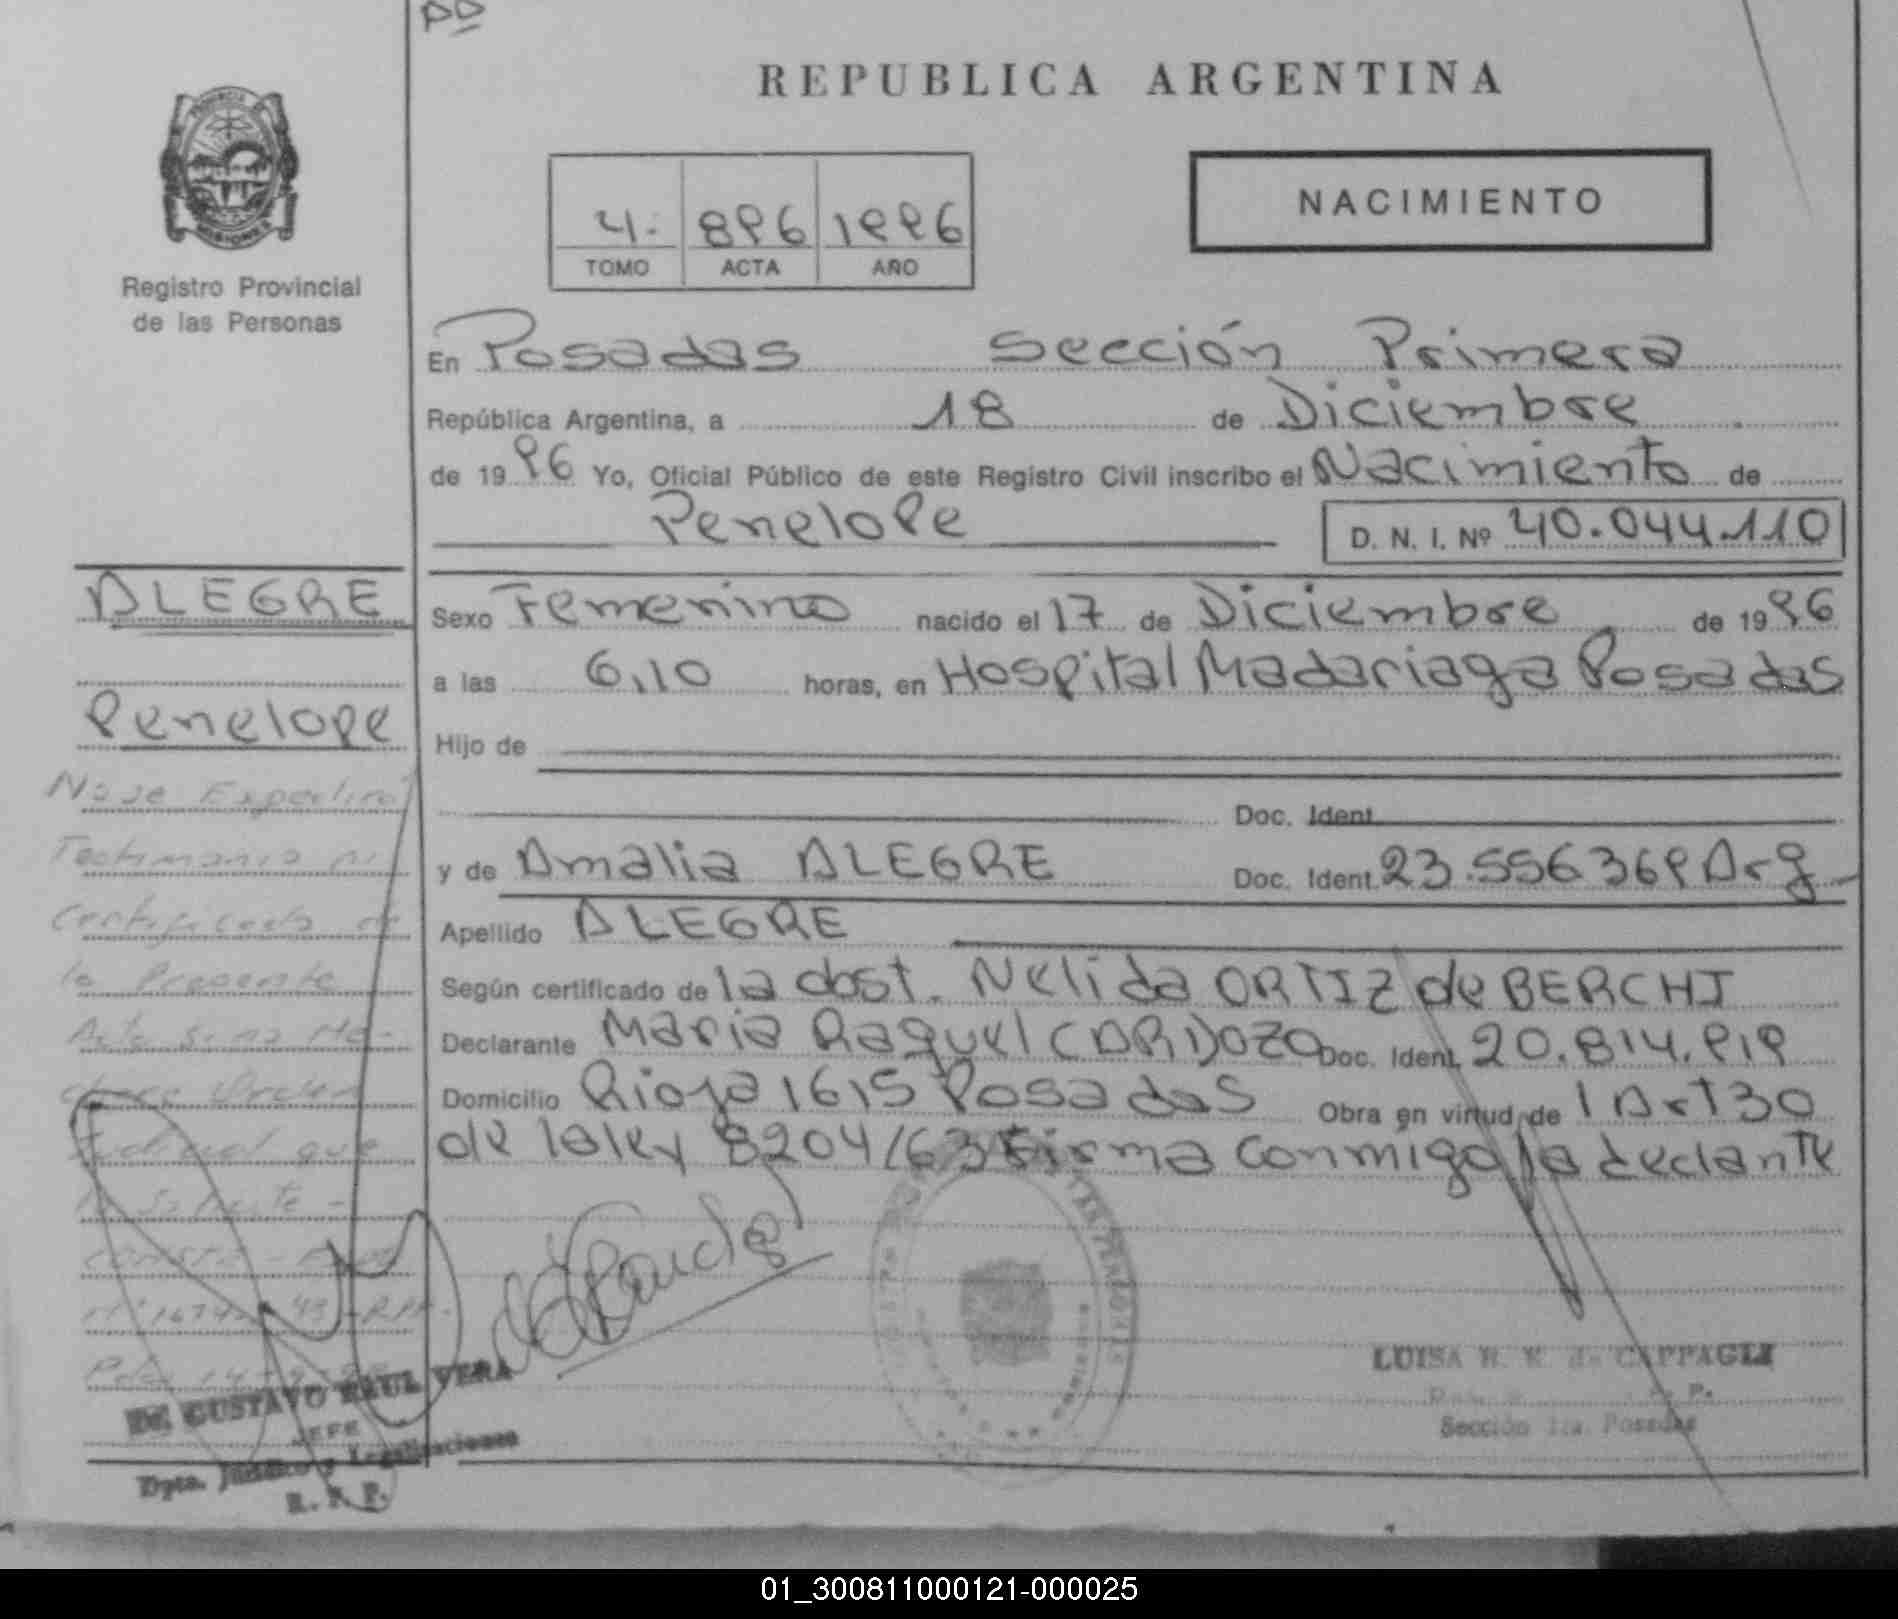 REPUBLICA ARGENTINA
MISIONES
Registro Provincial
de las Personas
4. 896 1996
TOMO ACTA AÑO
NACIMIENTO
En Posadas Sección Primera
República Argentina, a 18 de Diciembre
de 1996 Yo, Oficial Público de este Registro Civil inscribo el Nacimiento de
Penelope D. N. I. Nº 40.044.110
ALEGRE
Penelope
Sexo Femenino nacido el 17 de Diciembre de 1996
a las 6,10 horas, en Hospital Madariaga Posadas
Hijo de
Doc. Ident.
y de Amalia ALEGRE Doc. Ident. 23.556369 Arg
Apellido ALEGRE
Según certificado de la obst. Nelida ORTIZ de BERCHI
Declarante Maria Raquel CARDOZO Doc. Ident. 20.814.919
Domicilio Rioja 1615 Posadas Obra en virtud de 1 Art 30
de la ley 8204/63 Firma conmigo la declante
No se Expedira
Testimonio ni
Certificado de
la Presente
Acta si no Me-
Orden
Judicial que
DR. GUSTAVO RAUL VERA
JEFE
Dpto. Jurídico y Legalizaciones
R. P. P.
LUISA de CAPPAGLI
Sección 1ra. Posadas
01_300811000121-000025